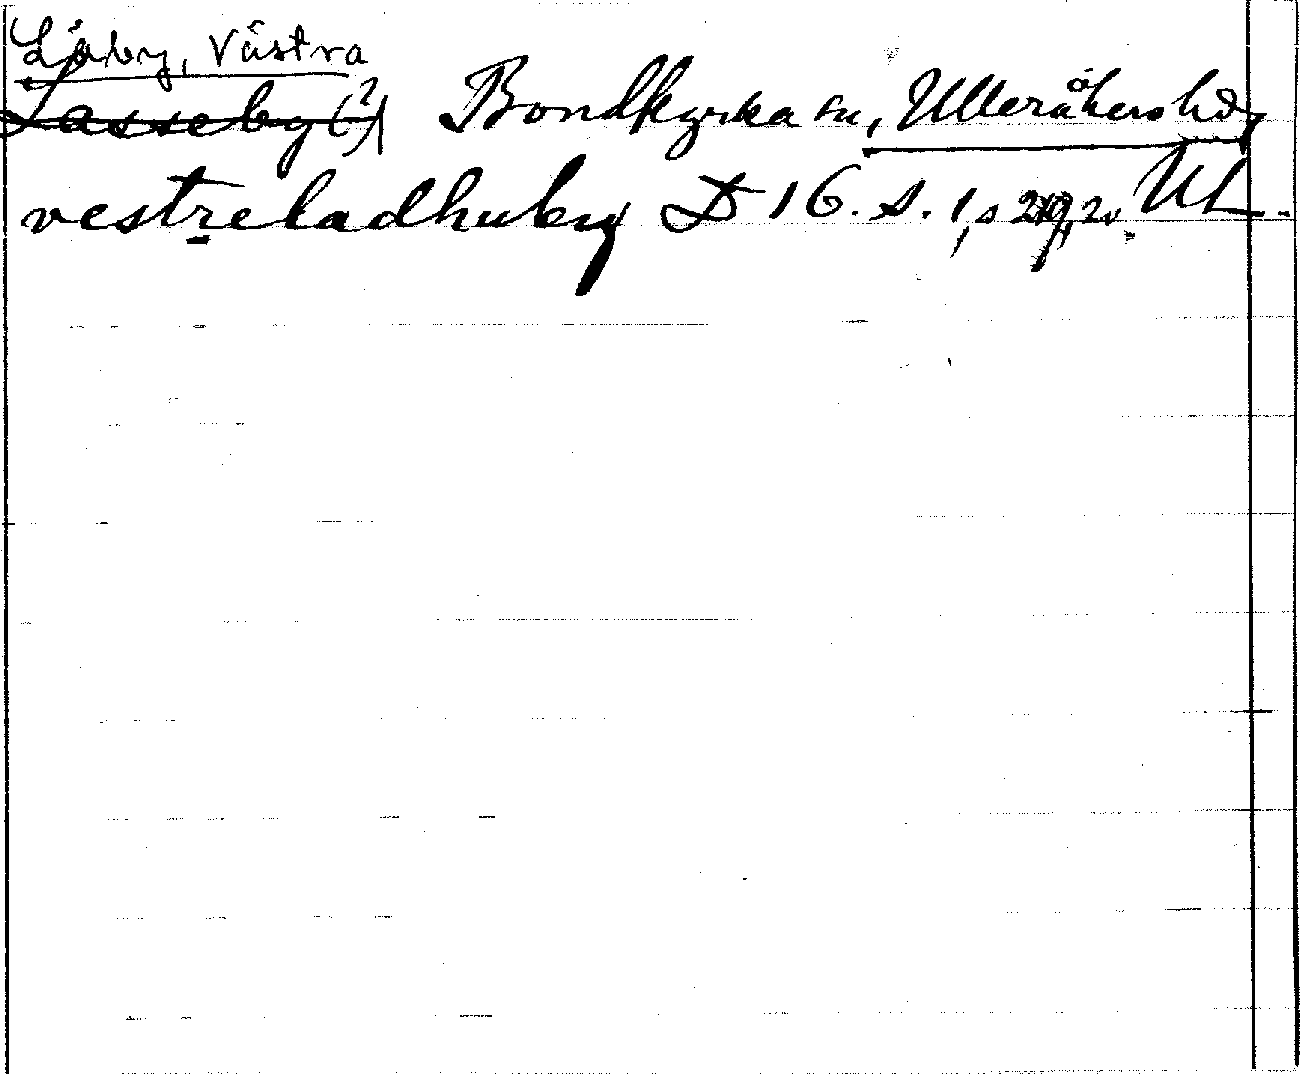 Läby, Västra
Lasseby (?) Bondkyrka sn, Ulleråkers hd,
vestreladhuby D 16. s. 1, s 2v. UL.